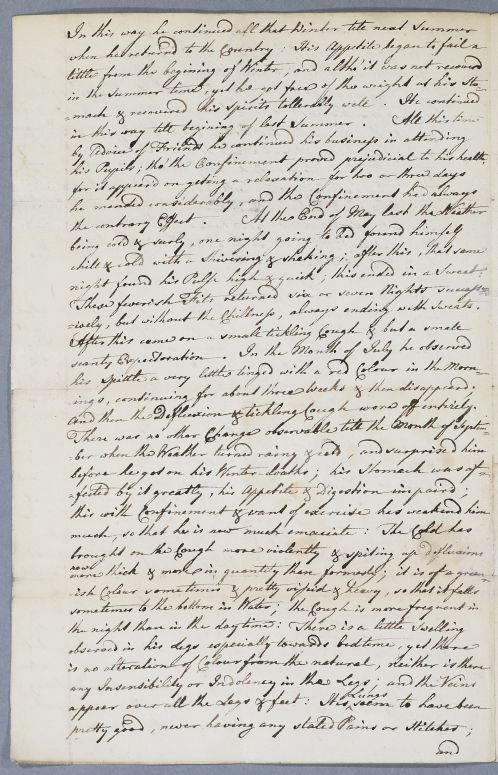 In this way he continued all that Winter till next Summer
when he returned to the Country: His Appetite began to fail a
little from the begining of Winter, and altho' it was not recoverd
in the Summer time, yet he got free of the weight at his Sto-
-mach & recovered his Spirits tollerably well. He continued
in this way till begining of last Summer. All this time
by Advice of Friends he continued his business in attending
his Pupils, tho the Confinement proved prejudicial to his health,
for it appeard on geting a relaxation for two or three days
he mended considerably, and the Confinement had always
the contrary Effect. At the End of May last the Weather
being cold & surly, one night going to Bed found himself
chill & cold with a Shivering & shaking; after this, that same
night found his Pulse high & quick; this ended in a Sweat.
These feverish Fits returned six or seven Nights success-
-ively, but without the Chillness, always ending with Sweats.
After this came on a small tickling Cough & but a small
scanty Expectoration. In the Month of July he observed
his Spittle a very little tinged with a red Colour in the Morn-
-ings, continuing for about three Weeks & then disappeard.
And then the Defluxion & tickling Cough wore off entirely.
There was no other Change observable till the Month of Septem-
-ber when the Weather turned rainy & cold, and surprised him
before he got on his Winter cloaths; his Stomach was af-
-fected by it greatly, his Appetite & Digestion impaird;
this with Confinement & want of exercise has weakend him
much, so that he is now much emaciate: The Cold has
brought on the Cough more violently & spiting up Defluxions
now more thick & more in quantity than formerly; it is of a green-
ish Colour sometimes & pretty viscid & heavy, so that it falls
sometimes to the bottom in Water; the Cough is more frequent in
the night than in the day time: There is a little Swelling
observed in his Legs especially towards bed time, yet there
is no alteration of Colour from the natural, neither is there
any Insensibility or Indolency in the Legs; and the Veins
appear over all the Legs & feet: His Lungs seem to have been
pretty good, never having any stated Pains or Stitches;
and